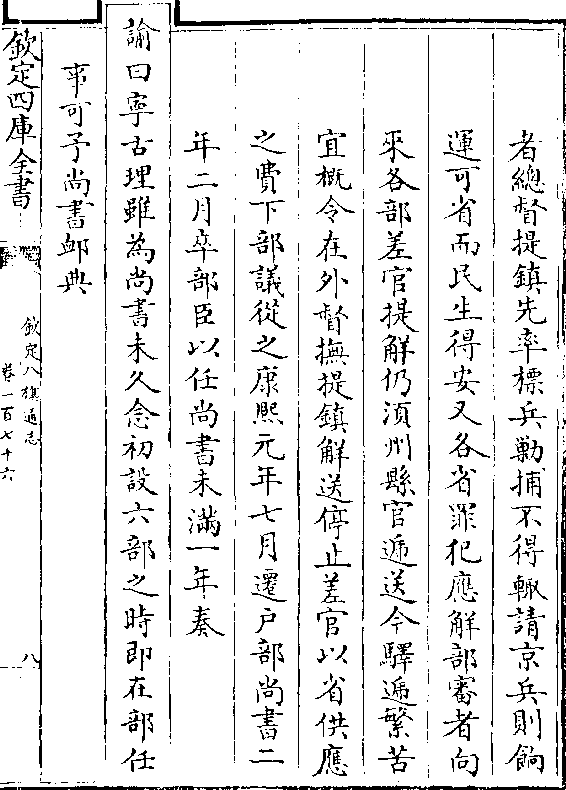 者總督提鎮先率標兵勦捕不得輙請京兵則餉
運可省而民生得安又各省罪犯應解部審者向
來各部差官提解仍湏州縣官遞送今驛遞繁苦
宜概令在外督撫提鎮解送停止差官以省供應
之費下部議從之康熙元年七月遷户部尚書二
年二月卒部臣以任尚書未滿一年奏
諭曰寧古理雖為尚書未久念初設六部之時即在部任
事可予尚書䘏典
欽定四庫全書
欽定八旗通志
卷一百七十六
八